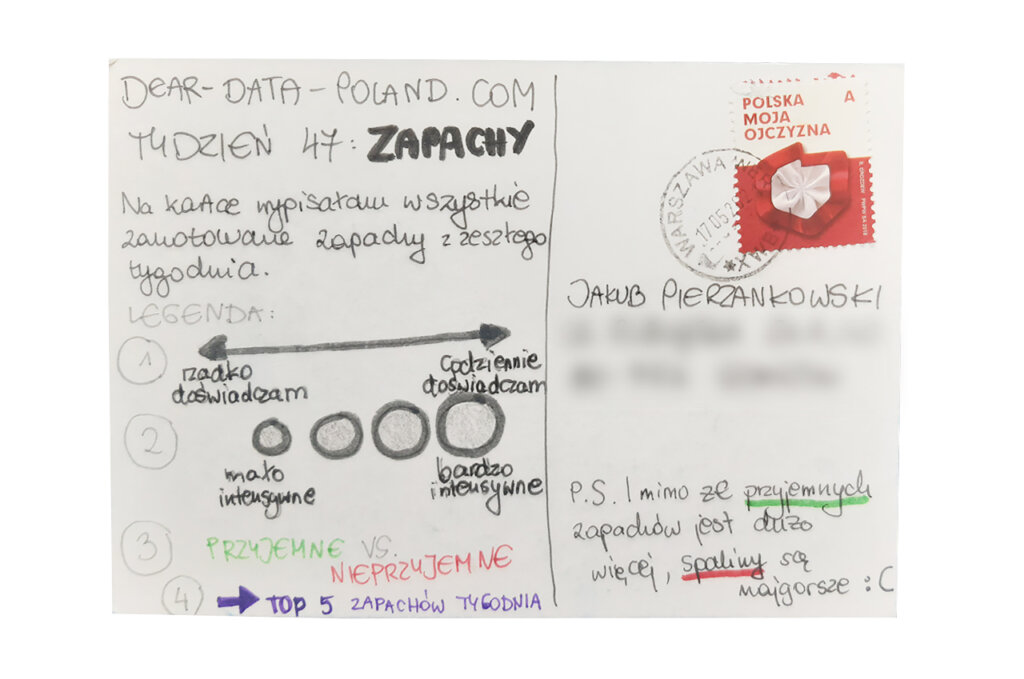 DEAR-DATA-POLAND.COM
TYDZIEŃ 47: ZAPACHY
Na kartce wypisałam wszystkie
zanotowane zapachy z zeszłego
tygodnia.
LEGENDA:
1
rzadko
doświadczam
codziennie
doświadczam
2
mało
intensywne
bardzo
intensywne
3
PRZYJEMNE VS.
NIEPRZYJEMNE
4
TOP 5 ZAPACHÓW TYGODNIA
POLSKA A
MOJA
OJCZYZNA
WARSZAWA
17.05.2
JAKUB PIERZANKOWSKI
P.S. I mimo że przyjemnych
zapachów jest dużo
więcej, spaliny są
najgorsze :C